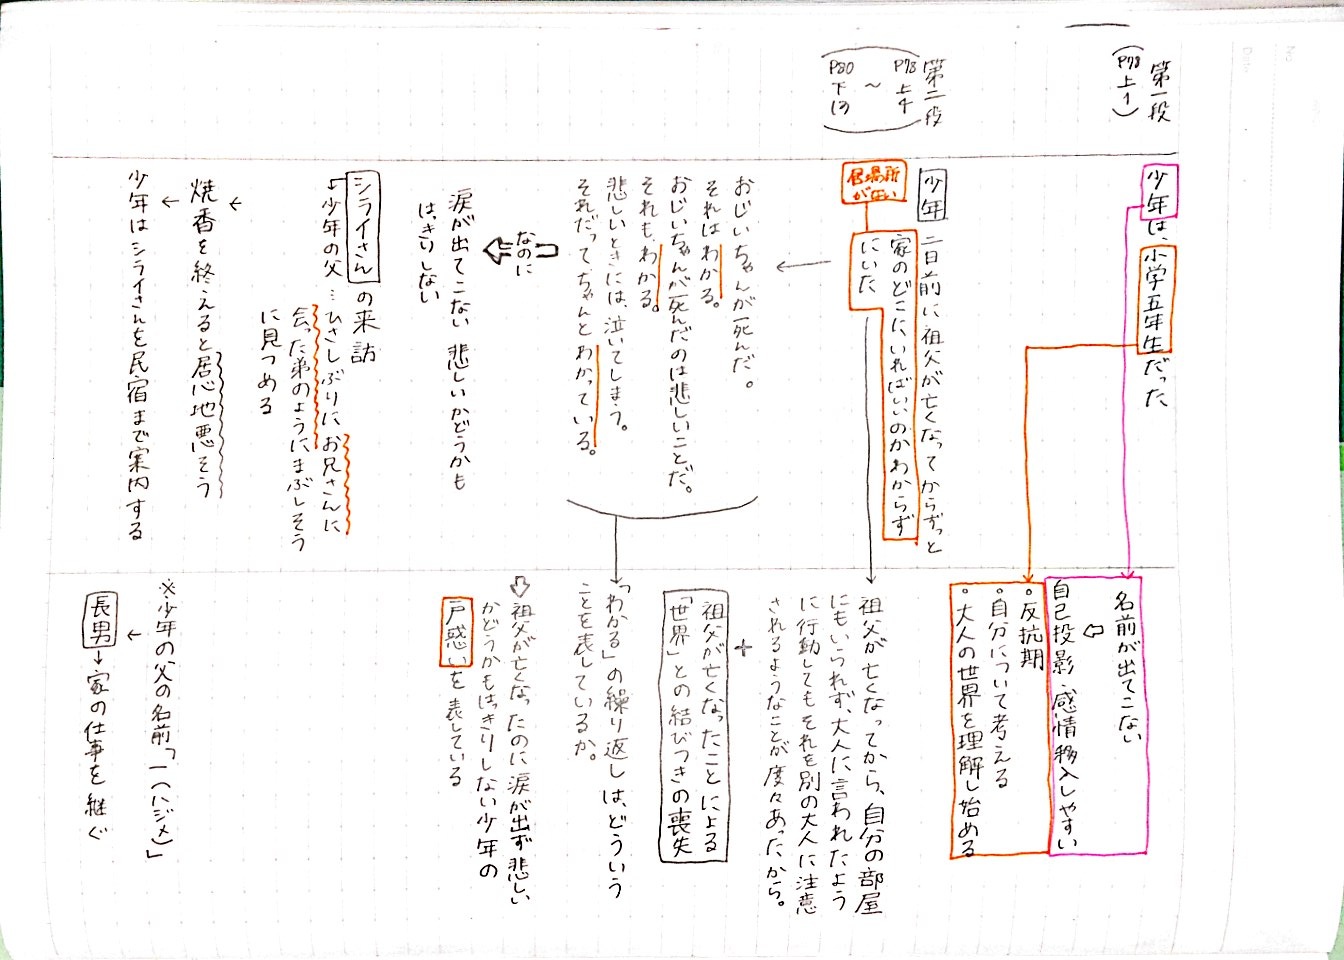 第一段
(P78上1)
少年は、小学五年生だった
名前が出てこない
自己投影・感情移入しやすい
。反抗期
。自分について考える
。大人の世界を理解し始める
第二段
P78上4
〜
P80下13
少年 二日前に祖父が亡くなってからずっと
家のどこにいればいいのかわからず
にいた
居場所
が無い
祖父が亡くなってから、自分の部屋
にもいられず、大人に言われたよう
に行動してもそれを別の大人に注意
されるようなことが度々あったから。
+
祖父が亡くなったことによる
「世界」との結びつきの喪失
おじいちゃんが死んだ。
それはわかる。
おじいちゃんが死んだのは悲しいことだ。
それも、わかる。
悲しいときには、泣いてしまう。
それだって、ちゃんとわかっている。
「わかる」の繰り返しは、どういう
ことを表しているか。
なのに
涙が出てこない 悲しいかどうかも
はっきりしない
祖父が亡くなったのに涙が出ず悲しい
かどうかもはっきりしない少年の
戸惑いを表している
シライさんの来訪
少年の父…ひさしぶりにお兄さんに
会った弟のようにまぶしそう
に見つめる
焼香を終えると居心地悪そう
少年はシライさんを民宿まで案内する
※少年の父の名前「一(ハジメ)」
長男→家の仕事を継ぐ